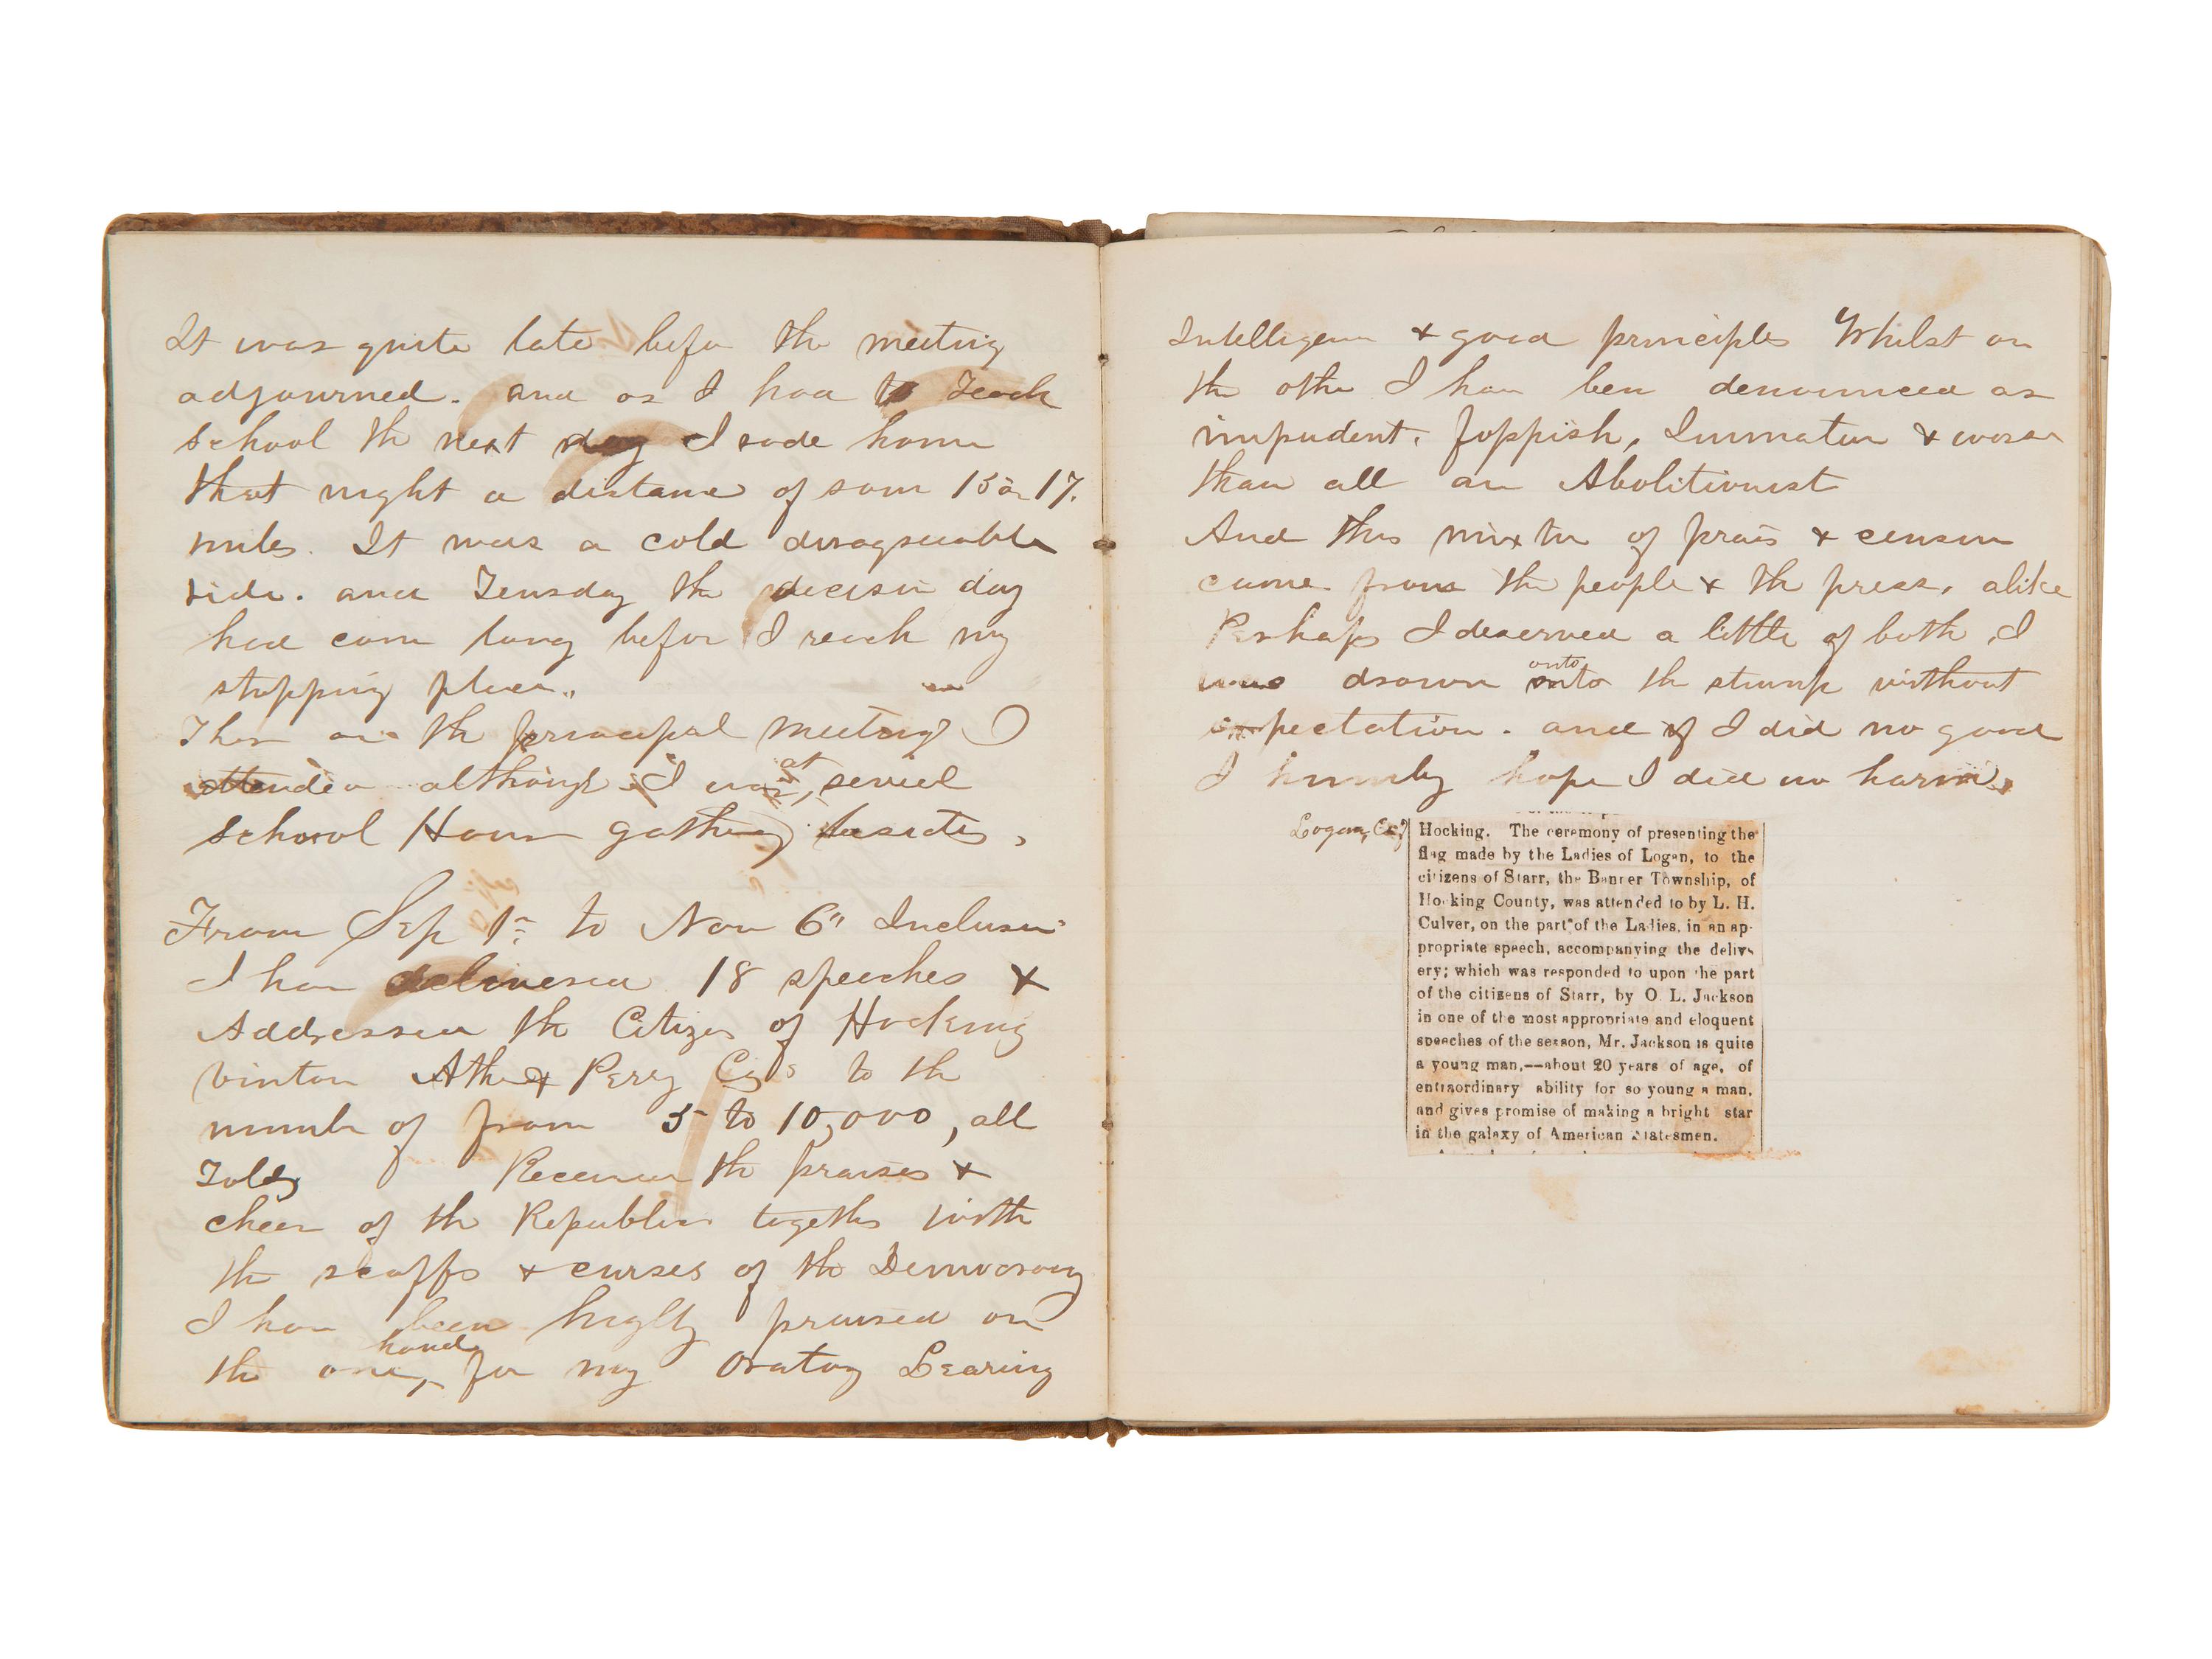 It was quite late befor the meeting
adjourned. and as I had to Teach
school the next day I rode home
that night a distance of som 15 or 17.
miles. It was a cold disagreeable
ride. and Teusday the decision day
had com long befor I reach my
stopping place..
Thes are the principal meetings I
attended although I was at, sevrel
school House gatherings besides,
From Sep 1st to Nov 6" Inclusive
I have delivered 18 speeches &
Addressed the Citizens of Hocking
Vinton Athens & Perry Cos to the
number of from 5 to 10,000, all
Told, Received the praises &
cheers of the Republicans together with
the scoffs & curses of the Democracy
I have been highly praised on
the one hand, for my Oratory Learing
Intelligence & good principles Whilst on
the other I have ben denounced as
impudent, foppish, Immature & worse
than all an Abolitionist
And this mixture of praise & censure
came from the people & the press, alike
Perhaps I deserved a little of both, I
was drawn onto onto the stump without
expectation. and if I did no good
I humbly hope I did no harm.
Logan,
Hocking. The ceremony of presenting the
flag made by the Ladies of Logan, to the
citizens of Starr, the Banner Township, of
Hocking County, was attended to by L. H.
Culver, on the part of the Ladies, in an ap-
propriate speech, accompanying the deliv-
ery; which was responded to upon the part
of the citizens of Starr, by O. L. Jackson
in one of the most appropriate and eloquent
speeches of the season, Mr. Jackson is quite
a young man,--about 20 years of age, of
entraordinary ability for so young a man,
and gives promise of making a bright star
in the galaxy of American Statesmen.